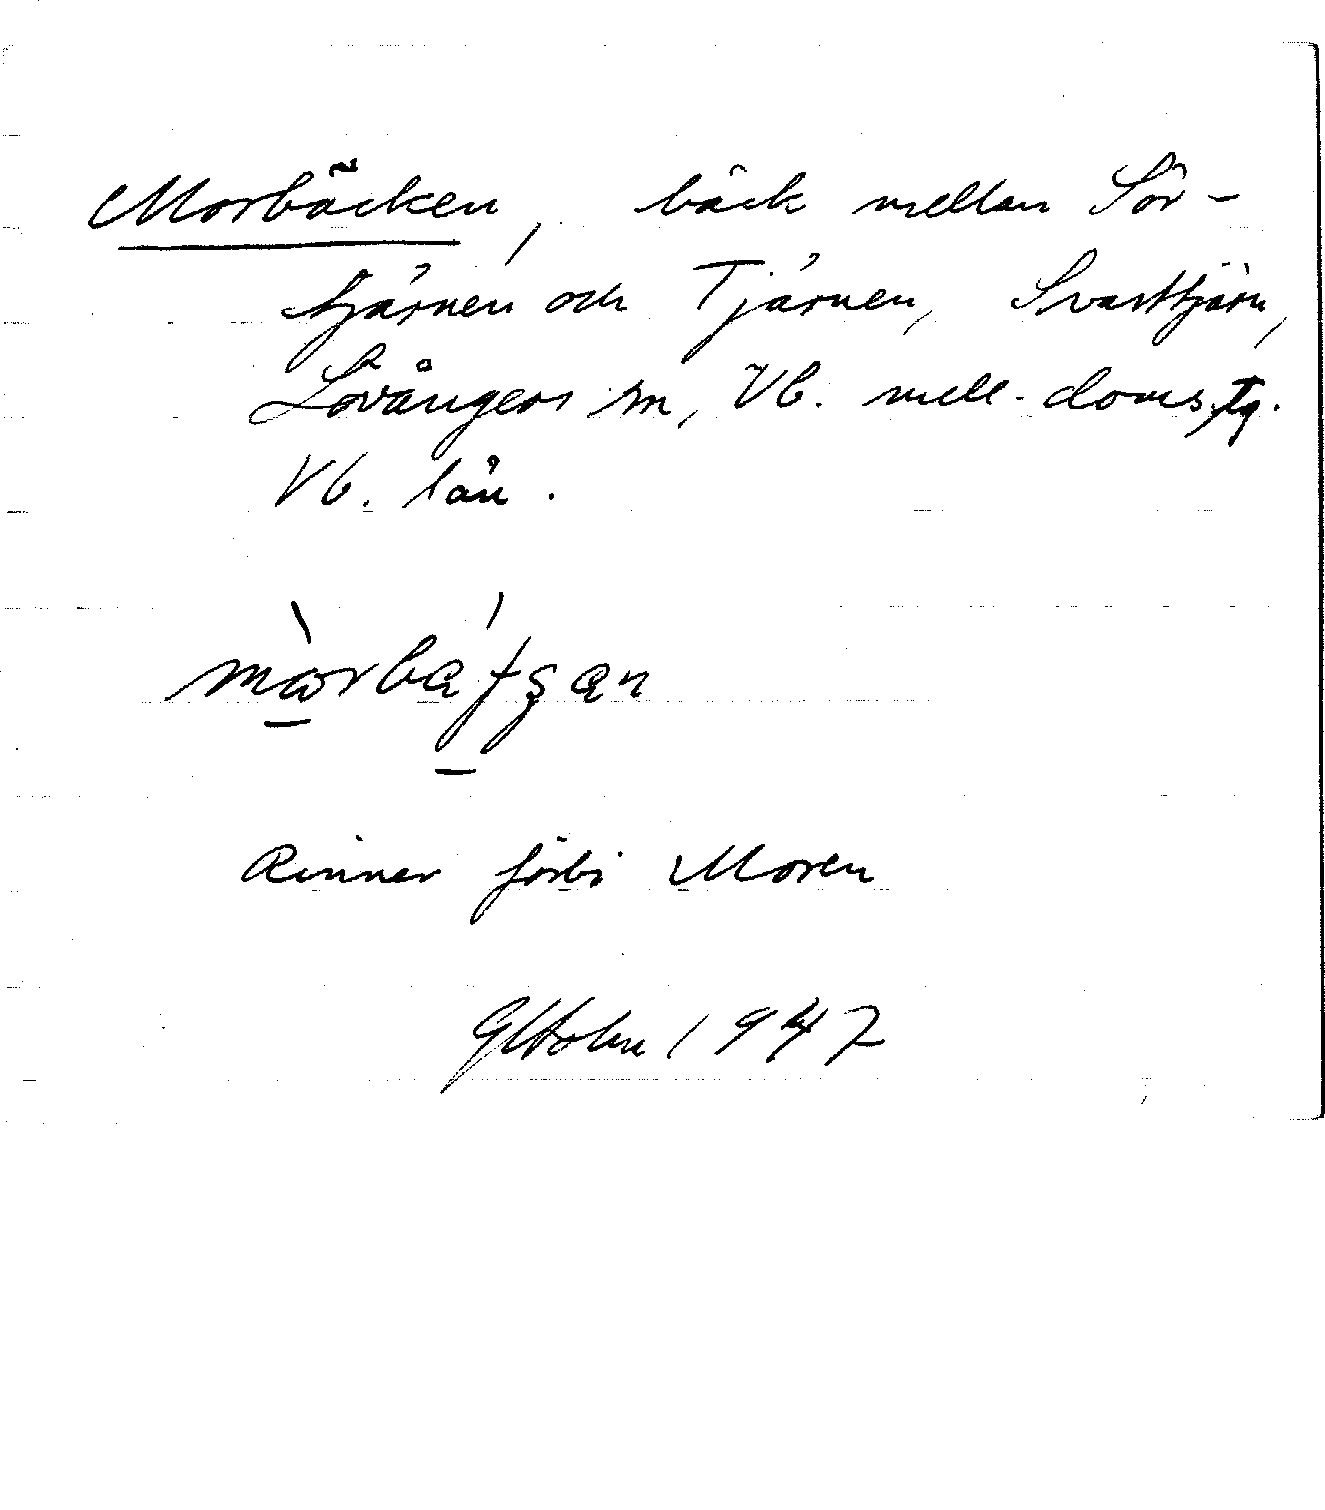 Morbäcken, bäck mellan Sör-
tjärnen och Tjärnen, Svarttjärn,
Lövångers sn, Vb. mell. doms. tg.
Vb. län.
Rinner förbi Moren
GHolm 1947